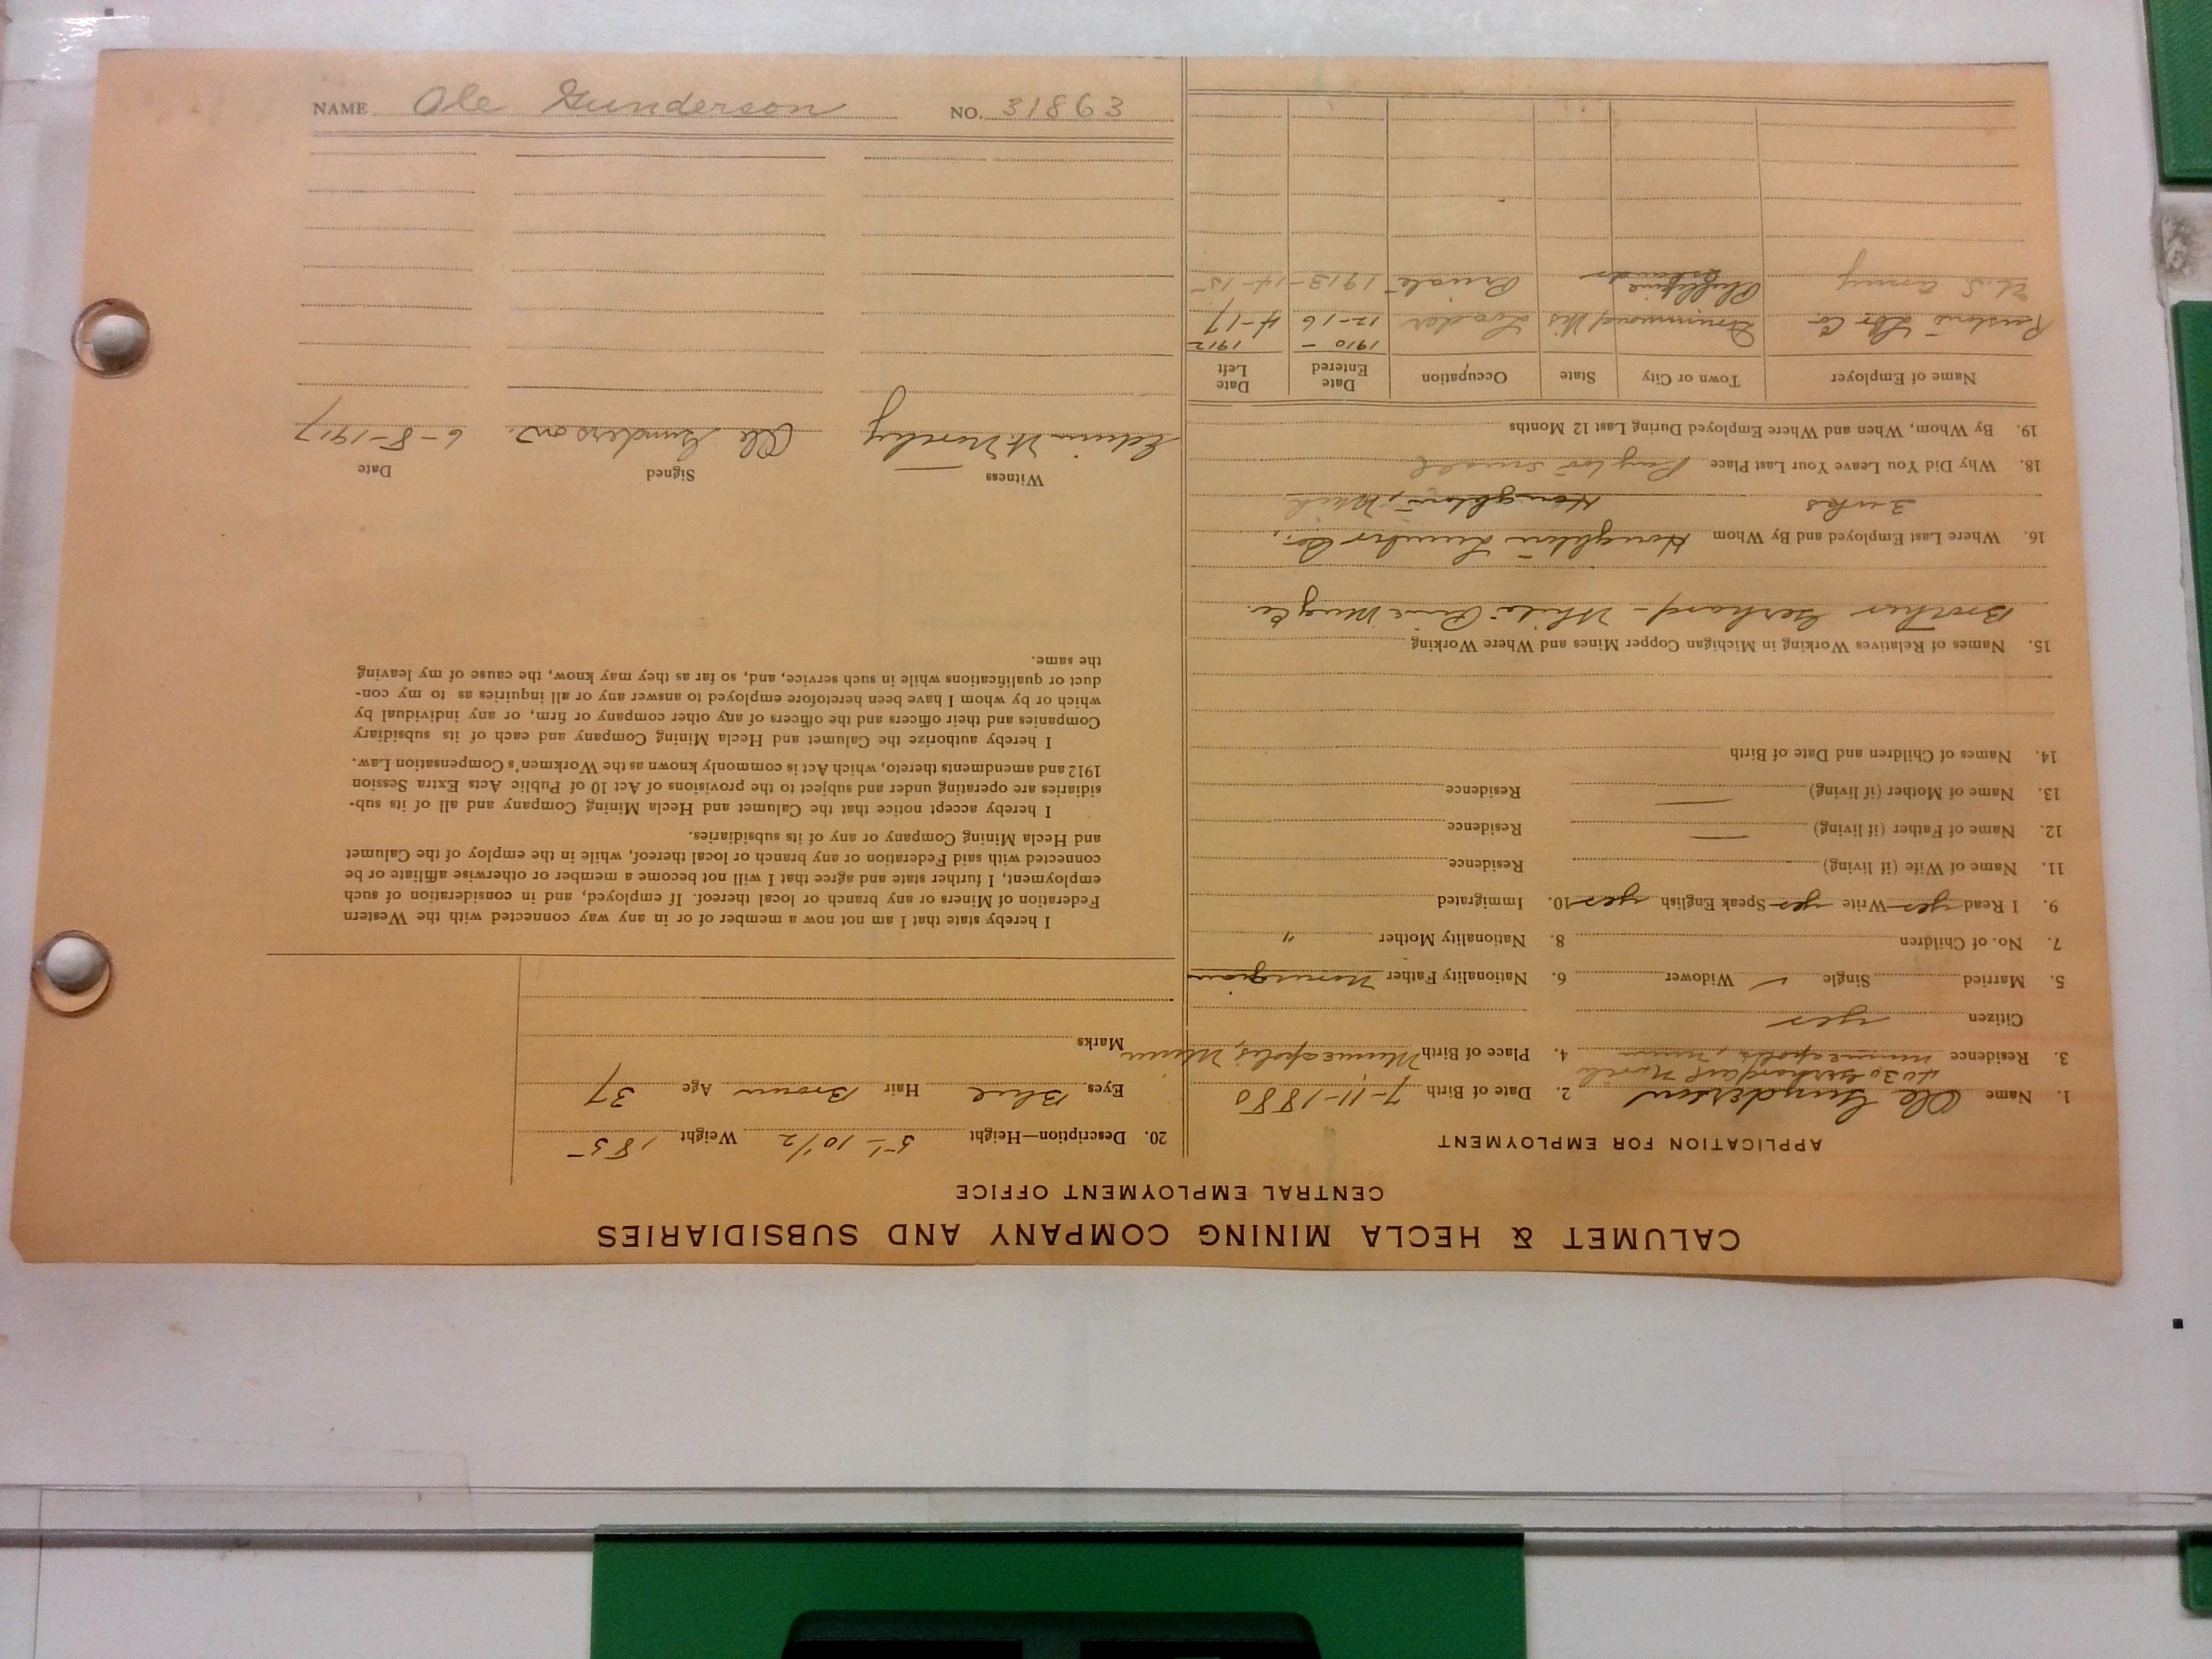 NAME Ole Gunderson NO. 31863
CALUMET & HECLA MINING COMPANY AND SUBSIDIARIES
CENTRAL EMPLOYMENT OFFICE
APPLICATION FOR EMPLOYMENT
1. Name Ole Gunderson 2. Date of Birth 7-11-1880
3. Residence Minneapolis, Minn 4. Place of Birth Minneapolis, Minn
Citizen yes
5. Married Single ✓ Widower 6. Nationality Father Norwegian
7. No. of Children 8. Nationality Mother "
9. I Read yes Write yes Speak English yes 10. Immigrated
11. Name of Wife (if living) Residence
12. Name of Father (if living) — Residence
13. Name of Mother (if living) — Residence
14. Names of Children and Date of Birth
15. Names of Relatives Working in Michigan Copper Mines and Where Working
Brother Gerhard - White Pine Mng Co.
16. Where Last Employed and By Whom Houghton Lumber Co.,
3 wks Houghton, Mich
18. Why Did You Leave Your Last Place Pay too small
19. By Whom, When and Where Employed During Last 12 Months
Name of Employer Town or City State Occupation Date Entered Date Left
1910 - 1912
Lbr Co Drummond Wis Loader 12-16 4-17
U.S. Army Philippine Islands Private 1913-14-15
20. Description—Height 5'-10 1/2 Weight 185
Eyes Blue Hair Brown Age 37
Marks
I hereby state that I am not now a member of or in any way connected with the Western
Federation of Miners or any branch or local thereof. If employed, and in consideration of such
employment, I further state and agree that I will not become a member or otherwise affiliate or be
connected with said Federation or any branch or local thereof, while in the employ of the Calumet
and Hecla Mining Company or any of its subsidiaries.
I hereby accept notice that the Calumet and Hecla Mining Company and all of its sub-
sidiaries are operating under and subject to the provisions of Act 10 of Public Acts Extra Session
1912 and amendments thereto, which Act is commonly known as the Workmen's Compensation Law.
I hereby authorize the Calumet and Hecla Mining Company and each of its subsidiary
Companies and their officers and the officers of any other company or firm, or any individual by
which or by whom I have been heretofore employed to answer any or all inquiries as to my con-
duct or qualifications while in such service, and, so far as they may know, the cause of my leaving
the same.
Witness Signed Date
Edwin W. Ole Gunderson. 6-8-1917